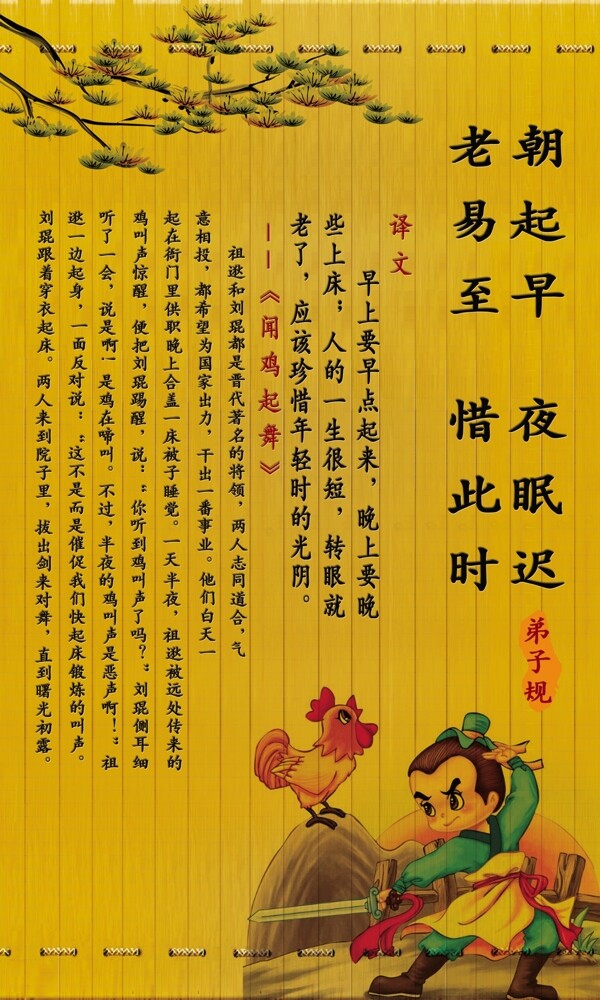 朝起早 夜眠迟
老易至 惜此时
弟子规
译文
早上要早点起来，晚上要晚
些上床；人的一生很短，转眼就
老了，应该珍惜年轻时的光阴。
——《闻鸡起舞》
祖逖和刘琨都是晋代著名的将领，两人志同道合，气
意相投，都希望为国家出力，干出一番事业。他们白天一
起在衙门里供职晚上合盖一床被子睡觉。一天半夜，祖逖被远处传来的
鸡叫声惊醒，便把刘琨踢醒，说：“你听到鸡叫声了吗？”刘琨侧耳细
听了一会，说是啊！是鸡在啼叫。不过，半夜的鸡叫声是恶声啊！”祖
逖一边起身，一面反对说：“这不是而是催促我们快起床锻炼的叫声。
刘琨跟着穿衣起床。两人来到院子里，拔出剑来对舞，直到曙光初露。